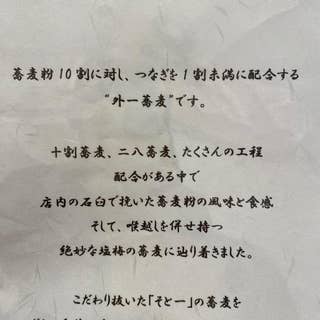 蕎麦粉10割に対し、つなぎを1割未満に配合する
“外一蕎麦”です。
十割蕎麦、二八蕎麦、たくさんの工程
配合がある中で
店内の石臼で挽いた蕎麦粉の風味と食感
そして、喉越しを併せ持つ
絶妙な塩梅の蕎麦に辿り着きました。
こだわり抜いた「そとー」の蕎麦を